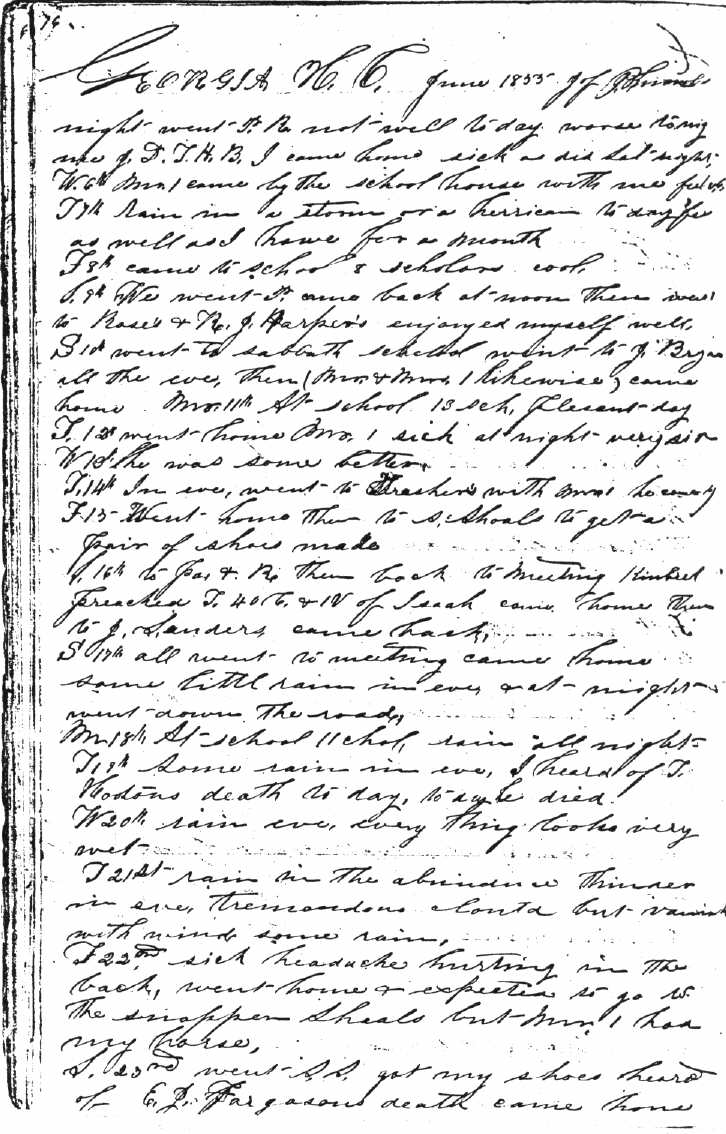 76.
GEORGIA H. C. June 1855 J of J
night went P. R. not well to day worse to nig
me J. D. T. H. B. I came home sick as did Sat night.
W. 6th Mr. 1 came by the school house with me
T 7th Rain in a storm or a herrican to day
as well as I have for a month
F 8th came to school 8 scholars cool.
S. 9th We went P. came back at noon then
to Rose's & R. J. Harper's enjoyed myself well,
S 10 went to sabbath school went to J. Bryan
all the eve, then (Mr. & Mrs. 1 likewise) came
home Mo. 11th At school 13 sch, plesant day
T. 12 went home Mr. 1 sick at night very sic
W 13 he was some better,
T. 14th In eve, went to Thrasher's with Mr. 1
F 15 Went home then to S. Shoals to get a
pair of shoes made
S. 16th to Pa, & R. then back to meeting Kimbrel
preached T. 40 C. & IV of Isaah came home then
to J. Sanders came back,
S 17th all went to meeting came home
some littl rain in eve, & at night
went down the road,
M. 18th At school 11 chol, rain all night
T 19th Some rain in eve, I heard of T.
death to day, to day he died
W 20th rain eve, every thing looks very
wet
T 21st rain in the abundance thunder
in eve, tremendous cloud but
with wind some rain,
F 22nd, sick headache hurting in the
back, went home & expected to go to
the snapper Shoals but Mr. 1 had
my horse,
S. 23rd went S. S. got my shoes heard
of E. J. Fargasons death came home